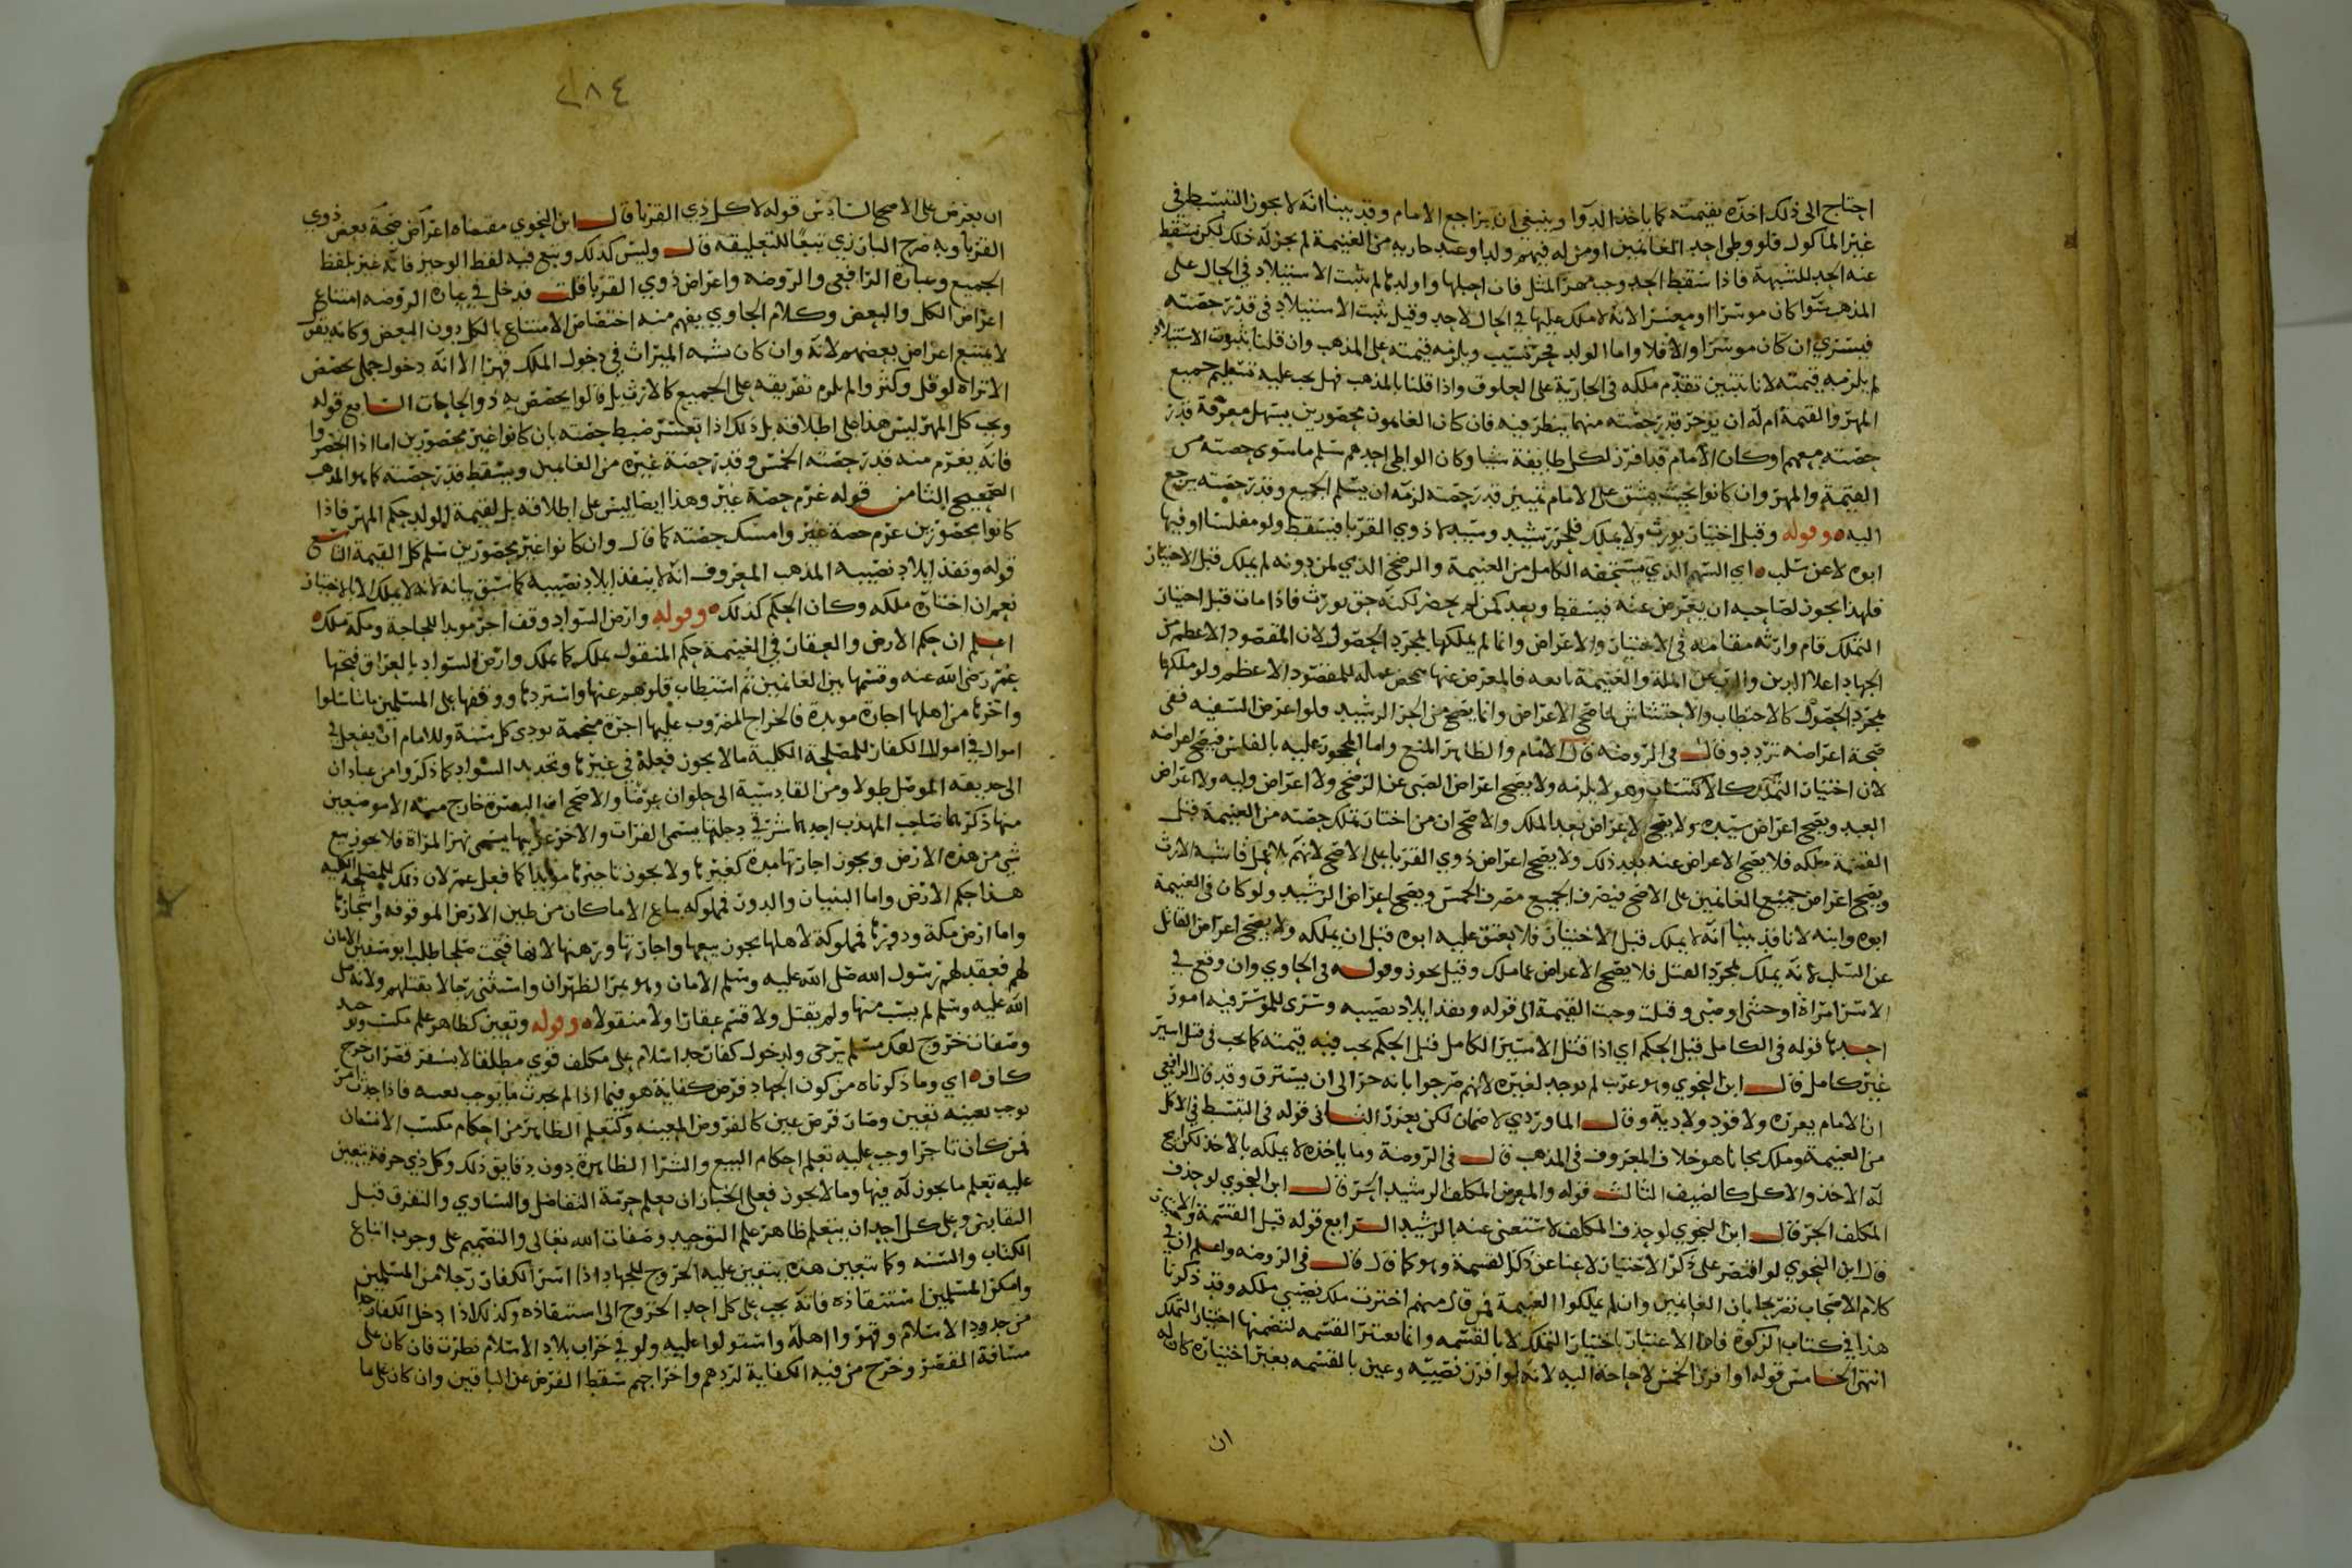 احتاج الى ذلك اخذه بقيمته كما ياخذ الدوا وينبغي ان يراجع الامام وقد بينا انه لا يجوز التبسط في
غير الماكول فلو وطى احد الغانمين او من له فيهم ولد او عبد جاريه من الغنيمة لم يجز له ذلك لكن يسقط
عنه الحد للشبهة فاذا سقط الحد وجب مهر المثل فان احبلها واولدها لم يثبت الاستيلاد في الحال على
المذهب سوا كان موسرا او معسرا لانه لا ملك عليها في الحال لاحد وقيل يثبت الاستيلاد في قدر حصته
فيسري ان كان موسرا والا فلا واما الولد فحر نسيب ويلزمه قيمته على المذهب وان قلنا بثبوت الاستيلاد
لم يلزمه قيمته لانا نتبين تقدم ملكه في الجارية على العلوق واذا قلنا بالمذهب فهل يجب عليه تسليم جميع
المهر والقيمة ام له ان يوخر قدر حصته منهما ينظر فيه فان كان الغانمون محصورين يسهل معرفة قدر
حصته معهم او كان الامام قد افرز لكل طايفة شيا وكان الواطي احدهم سلم ما سوى حصته من
القيمة والمهر وان كانوا بحيث يشق على الامام تمييز قدر حصته لزمه ان يسلم الجميع وقدر حصته يرجع
اليه وقوله وقبل اختيار يورث ولا يملك فلحر رشيد وسيد لا ذوي القربا فيسقط ولو مفلسا او فيها
ابوه لا عن سلب اي السهم الذي يستحقه الكامل من الغنيمة والرضخ الذي لمن دونه لم يملك قبل الاختيار
فلهذا يجوز لصاحبه ان يعرض عنه فيسقط ويعد كمن لم يحضر لكنه حق يورث فاذا مات قبل اختيار
التملك قام وارثه مقامه في الاختيار والاعراض وانما لم يملكها بمجرد الحصول لان المقصود الاعظم من
الجهاد اعلا الدين والذب عن الملة والغنيمة تابعه فالمعرض عنها ممحض عمله للمقصود الاعظم ولو ملكها
بمجرد الحصول كالاحتطاب والاحتشاش لما صح الاعراض وانما يصح من الحر الرشيد ولو اعرض السفيه ففي
صحة اعراضه تردد وقال في الروضه قال الامام والظاهر المنع واما المحجور عليه بالفلس فيصح اعراضه
لان اختيار التملك كالاكتساب وهو لا يلزمه ولا يصح اعراض الصبي عن الرضخ ولا اعراض وليه ولا اعراض
العبد ويصح اعراض سيده ولا يصح الاعراض بعد الملك والاصح ان من اختار تملك حصته من الغنيمة قبل
القسمة ملكه فلا يصح الاعراض عنه بعد ذلك ولا يصح اعراض ذوي القربا على الاصح لانهم بلا عمل فاشبه الارث
ويصح اعراض جميع الغانمين على الاصح فيصرف الجميع مصرف الخمس ويصح اعراض الرشيد ولو كان في الغنيمة
ابوه وابنه لانا قد بينا انه لا يملك قبل الاختيار فلا يعتق عليه ابوه قبل ان يملكه ولا يصح اعراض القاتل
عن السلب لانه يملك بمجرد القتل فلا يصح الاعراض عما ملك وقيل يجوز وقوله في الحاوي وان وقع في
الاسر امراة او خنثى او صبي وقتلت وجبت القيمة الى قوله ونفذ ايلاد نصيبه وسرى للموسر فيه امور
احدها قوله في الكامل قبل الحكم اي اذا قتل الاسير الكامل قبل الحكم يجب فيه قيمته كما يجب في قتل اسير
غير كامل قال ابن النحوي وهو غريب لم يوجد لغيره لانهم صرحوا بانه حر الى ان يسترق وقد قال الرافعي
ان الامام يعزره ولا قود ولا دية وقال الماوردي لا ضمان لكن يعزر الثاني قوله في التبسط في الاكل
من الغنيمة وملك مجانا هو خلاف المعروف في المذهب قال في الروضة وما ياخذه لا يملكه بالاخذ لكن ابيح
له الاخذ والاكل كالضيف الثالث قوله والمعرض المكلف الرشيد الحر قال ابن النحوي لو حذف
المكلف الحر قال ابن النحوي لو حذف المكلف لاستغنى عنه بالرشيد الرابع قوله قبل القسمة والاختيار
قال ابن النحوي لو اقتصر على ذكر الاختيار لاغنا عن ذكر القسمة وهو كما قال قال في الروضه واعلم ان في
كلام الاصحاب تصريحا بان الغانمين وان لم يملكوا الغنيمة فمن قال منهم اخترت ملك نصيبي ملكه وقد ذكرنا
هذا في كتاب الزكوة فاذا الاعتبار باختيار التملك لا بالقسمه وانما يعتبر القسمه لتضمنها اختيار التملك
انتهى الخامس قوله او افرز الخمس لا حاجة اليه لانه لو افرز نصيبه وعين بالقسمه بغير اختياره كان له
ان
٤٨٢
ان يعرض على الاصح السادس قوله لا كل ذي القربا قال ابن النحوي مقتضاه اعراض صحة بعض ذوي
القربا وبه صرح البارزي تبعا للتعليقه قال وليس كذلك وتبع فيه لفظ الوجيز فانه عبر بلفظ
الجميع وعبارة الرافعي والروضه واعراض ذوي القربا قلت فدخل في عبارة الروضه امتناع
اعراض الكل والبعض وكلام الحاوي يفهم منه اختصاص الامتناع بالكل دون البعض وكانه يقول
لا يمتنع اعراض بعضهم لانه وان كان يشبه الميراث في دخول الملك قهرا الا انه دخول جملي
الا تراه لو قل وكثر والم يلزم تفريقه على الجميع كالارث بل قالوا يخصص به ذوو الحاجات السابع قوله
ويجب كل المهر ليس هذا على اطلاقه بل ذلك اذا تعسر ضبط حصته بان كانوا غير محصورين اما اذا انحصروا
فانه يغرم منه قدر حصته الخمس وقدر حصة غيره من الغانمين ويسقط قدر حصته كما هو المذهب
الصحيح الثامن قوله غرم حصة غيره وهذا ايضا ليس على اطلاقه بل لقيمة الولد حكم المهر فاذا
كانوا محصورين غرم حصة غيره وامسك حصته كما قال وان كانوا غير محصورين سلم كل القيمة التاسع
قوله ونفذ ايلاد نصيبه المذهب المعروف انه لا ينفذ ايلاد نصيبه كما سبق بيانه لانه لا يملك الا بالاختيار
نعم ان اختاره ملكه وكان الحكم كذلك وقوله وارض السواد وقف اجر موبدا للحاجة ومكة ملك
اعلم ان حكم الارض والعقار في الغنيمة حكم المنقول يملك كما يملك وارض السواد بالعراق فتحها
عمر رضي الله عنه وقسمها بين الغانمين ثم استطاب قلوبهم عنها واستردها ووقفها على المسلمين
واجرها من اهلها اجارة موبدة فالخراج المضروب عليها اجرة منجمة تودي كل سنة وللامام ان يفعل في
اموال الكفار للمصلحة الكلية ما لا يجوز فعله في غيرها وتحديد السواد كما ذكروا من عبادان
الى حديثة الموصل طولا ومن القادسية الى حلوان عرضا والاصح ان البصرة خارج منه الا موضعين
منها ذكرهما صاحب المهذب احدهما شرقي دجلتها يسمى الفرات والاخر غربيها يسمى نهر المراة فلا يجوز بيع
شي من هذه الارض ويجوز اجارتها مدة كغيرها ولا يجوز تاجيرها موبدا كما فعل عمر لان ذلك للمصلحة الكليه
هذا حكم الارض واما البنيان والدور فمملوكه يباع الا ما كان من طين الارض الموقوفه واحجارها
واما ارض مكة ودورها فمملوكة لاهلها يجوز بيعها واجارتها ورهنها لانها فتحت صلحا طلب ابو سفين الامان
لهم فعقد لهم رسول الله صلى الله عليه وسلم الامان وهو بمر الظهران واستثنى رجالا بقتلهم ولانه صلى
الله عليه وسلم لم يسب منها ولم يقتل ولا قسم عقارا ولا منقولا وقوله وتعين كظاهر علم مكتسب وتوحيد
وصفات خروج لفك مسلم يرجى ولدخول كفار حد اسلام على مكلف قوي مطلقا لا بسفر قصر ان خرج
كاف اي وما ذكرناه من كون الجهاد فرض كفاية هو فيما اذا لم يحدث ما يوجب تعينه فاذا حدث امر
يوجب تعينه تعين وصار فرض عين كالفروض المعينه وكتعلم الظاهر من احكام مكتسب الانسان
فمن كان تاجرا وجب عليه تعلم احكام البيع والشرا الظاهرة دون دقايق ذلك وكل ذي حرفة يتعين
عليه تعلم ما يجوز له فيها وما لا يجوز فعلى الخباز ان يعلم حرمة التفاضل والتساوي والتفرق قبل
التقابض وعلى كل احد ان يتعلم ظاهر علم التوحيد وصفات الله تعالى والتصميم على وجوب اتباع
الكتاب والسنه وكما يتعين هذه يتعين عليه الخروج للجهاد اذا اسر الكفار رجلا من المسلمين
وامكن المسلمين استنقاذه فانه يجب على كل احد الخروج الى استنقاذه وكذلك اذا دخل الكفار حدا
من حدود الاسلام وقهروا اهله واستولوا عليه ولو في خراب بلاد الاسلام نظرت فان كان على
مسافة القصر وخرج من فيه الكفاية لردهم واخراجهم سقط الفرض عن الباقين وان كان على ما